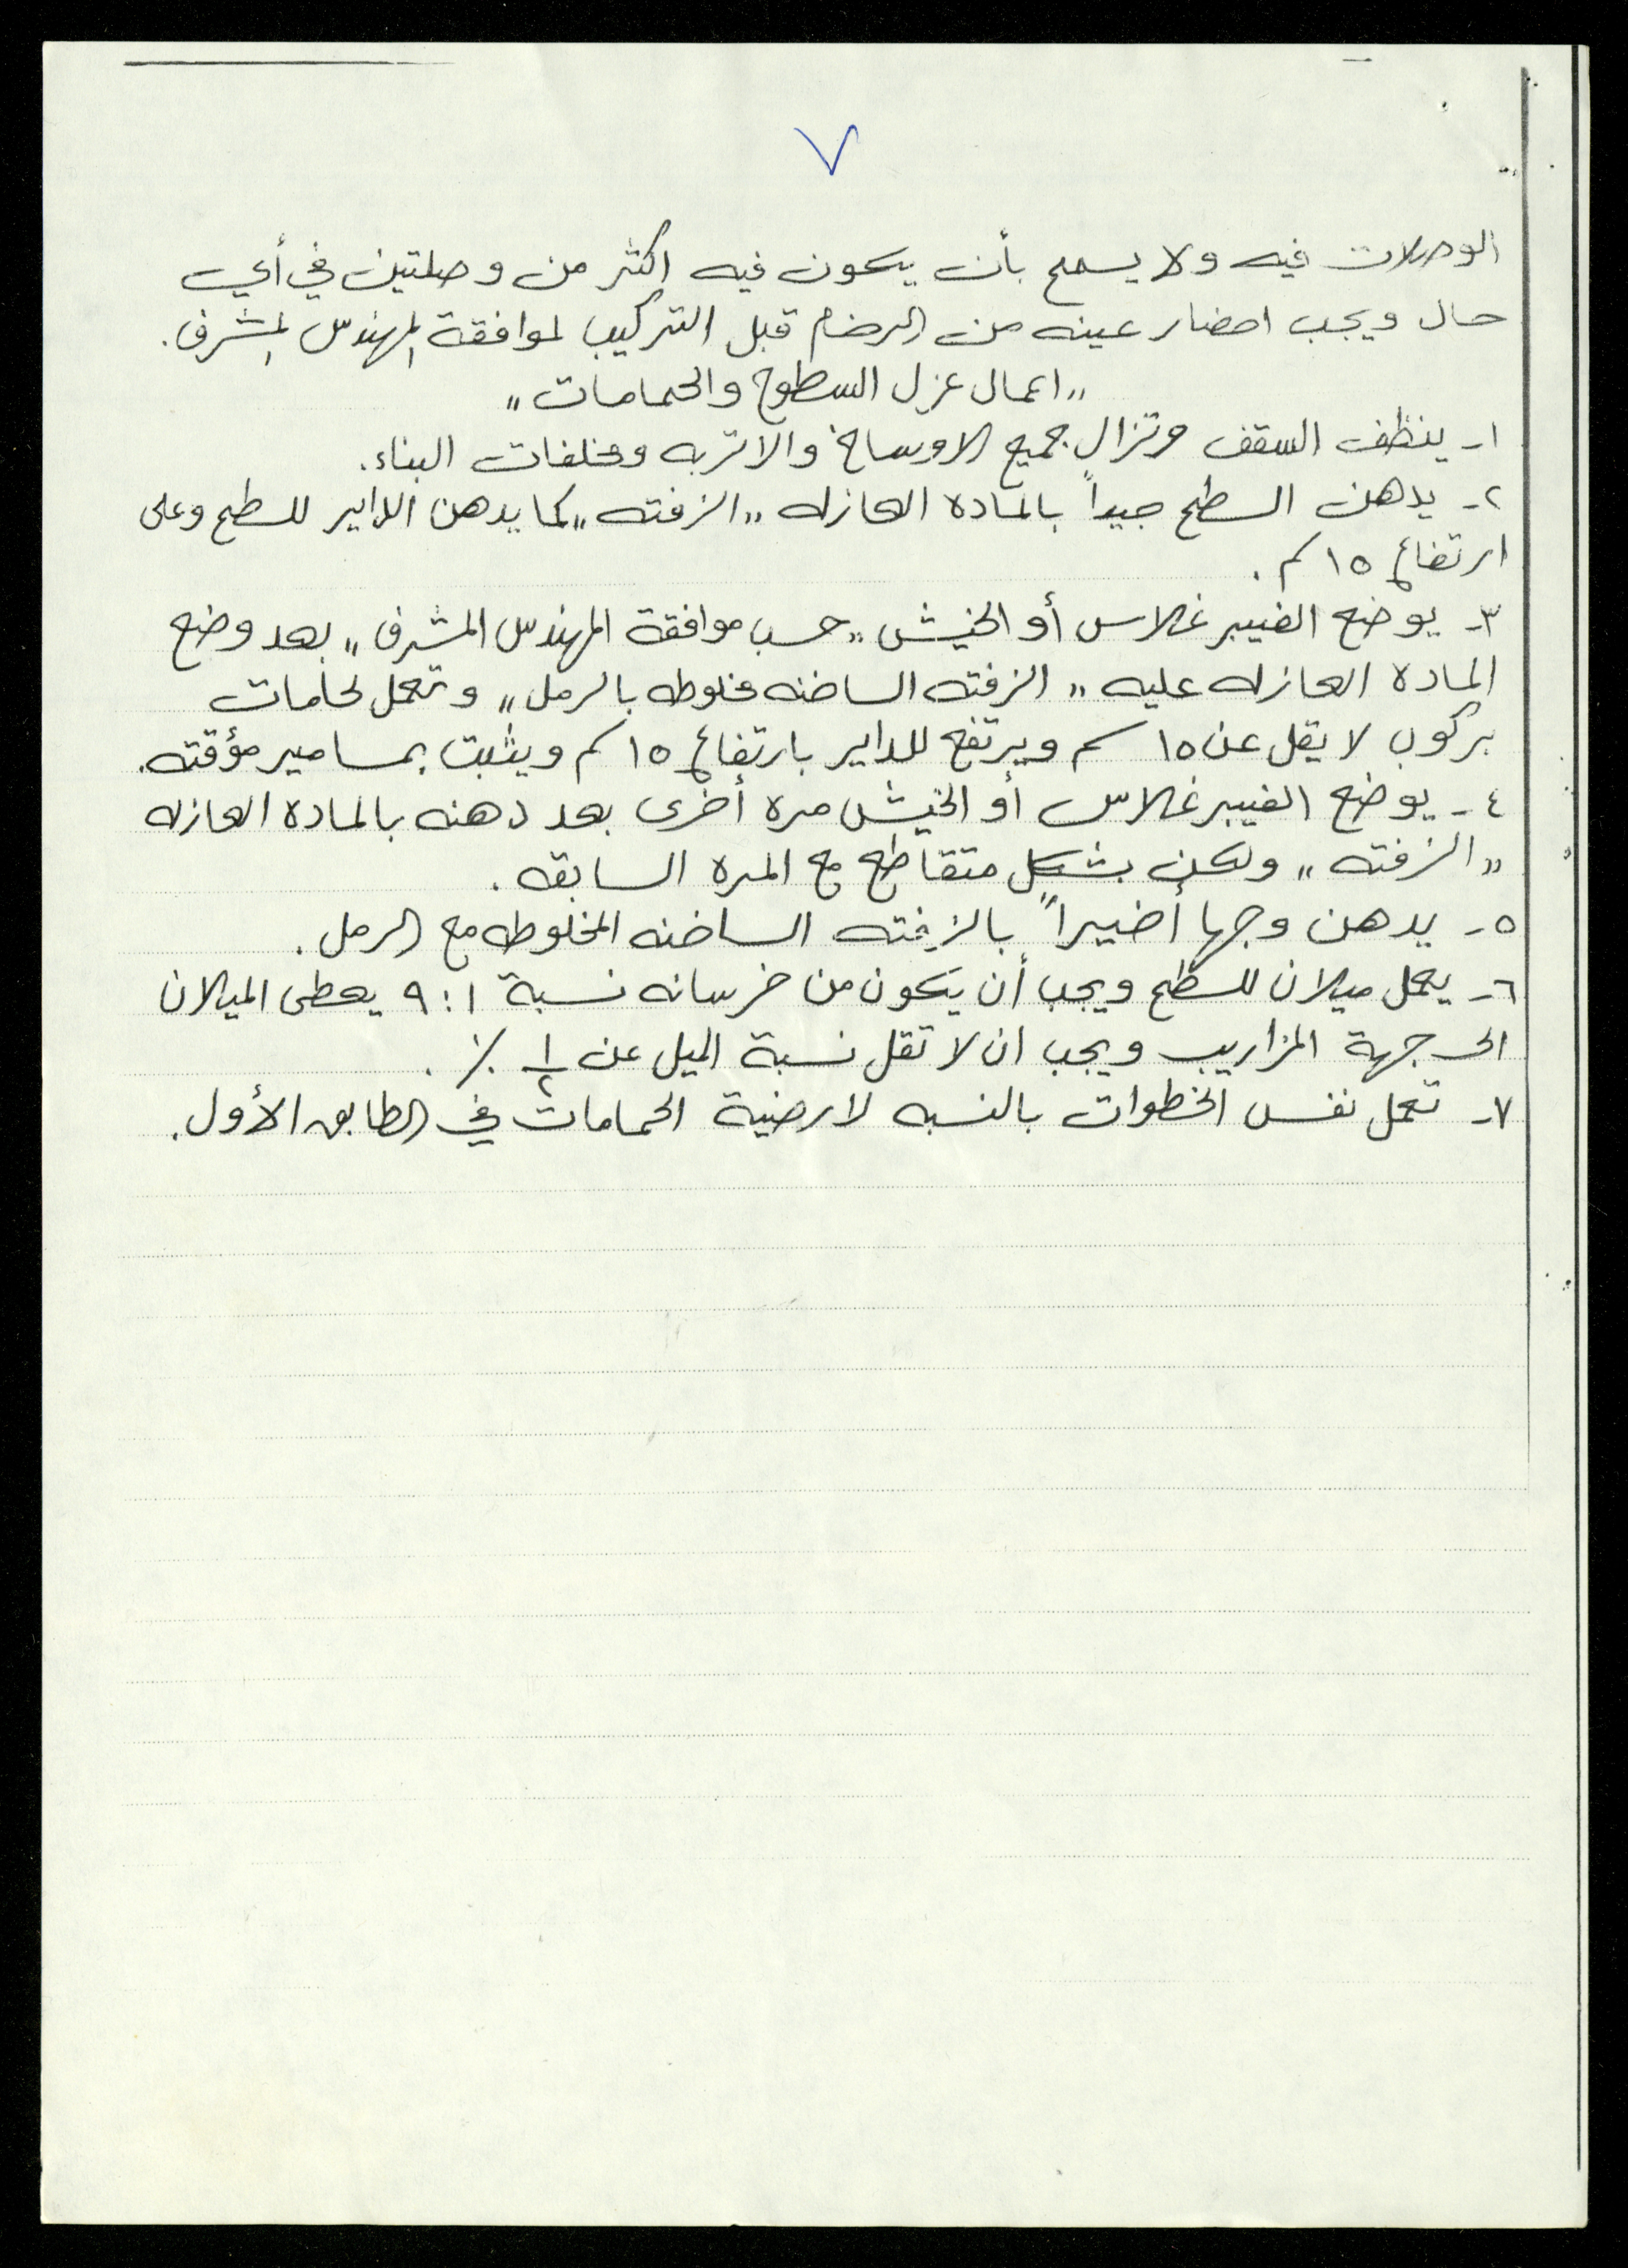 ٧
الوصلات فيه ولا يسمح بأن يكون فيه اكثر من وصلتين في أي
حال ويجب احضار عينه من الرخام قبل التركيب لموافقة المهندس المشرف.
"اعمال عزل السطوح والحمامات"
١- ينظف السقف وتزال جميع الاوساخ والاتربه ومخلفات البناء.
٢- يدهن السطح جيداً بالماده العازله "الزفته" كما يدهن الداير للسطح وعلى
ارتفاع ١٥ سم.
٣- يوضع الفيبر غلاس أو الخيش "حسب موافقة المهندس المشرف" بعد وضع
الماده العازله عليه "الزفته الساخنه مخلوطه بالرمل" وتعمل لحامات
بركوب لا يقل عن ١٥ سم ويرتفع للداير بارتفاع ١٥ سم ويثبت بمسامير مؤقته.
٤- يوضع الفيبر غلاس أو الخيش مره أخرى بعد دهنه بالماده العازله
"الزفته" ولكن بشكل متقاطع مع المره السابقه.
٥- يدهن وجها أخيراً بالزفته الساخنه المخلوطه مع الرمل.
٦- يعمل ميلان للسطح ويجب أن يكون من خرسانه نسبة ١:٩ يعطى الميلان
الى جهة المزاريب ويجب ان لا تقل نسبة الميل عن ١/٢ ٪.
٧- تعمل نفس الخطوات بالنسبه لارضية الحمامات في الطابق الأول.